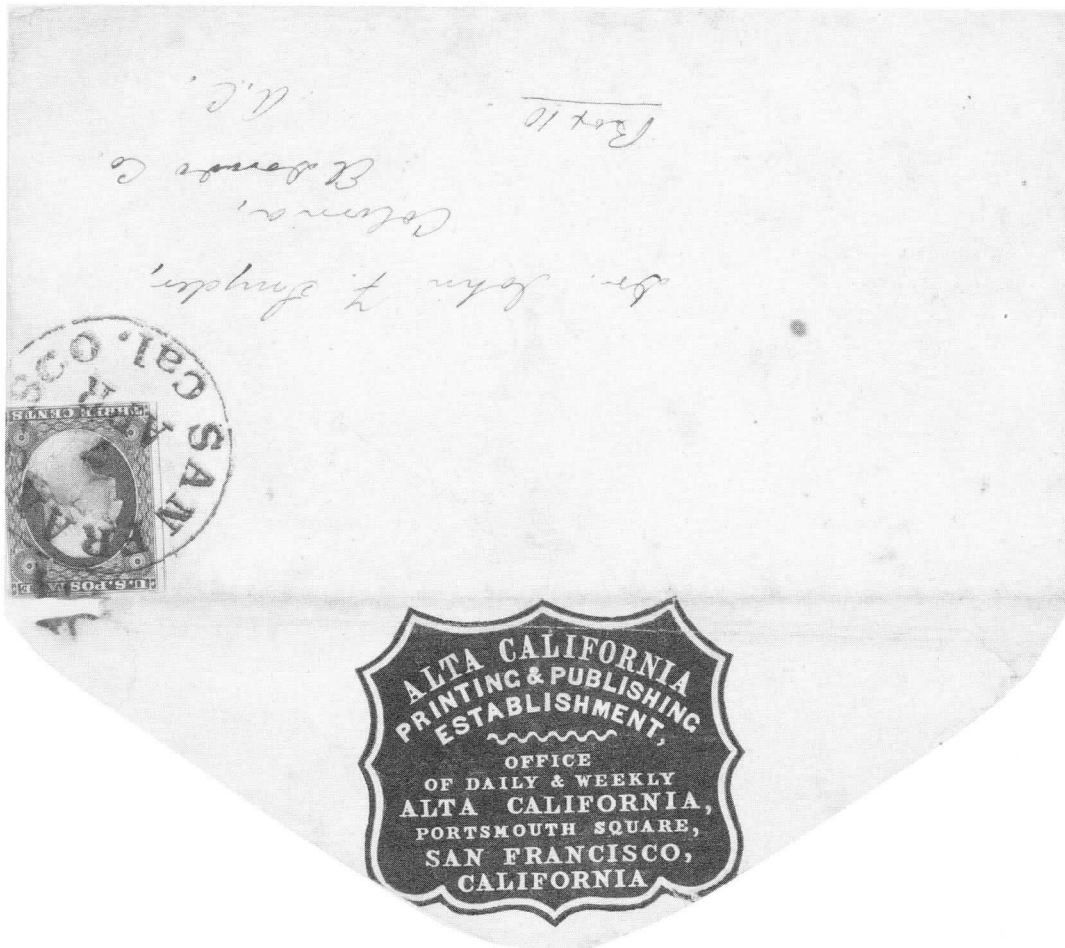 Dr. John F. Snyder,
Coloma,
El Dorado Co.
Box 10
U.S. POSTAGE
THREE CENTS
SAN
Cal.
ALTA CALIFORNIA
PRINTING & PUBLISHING
ESTABLISHMENT,
OFFICE
OF DAILY & WEEKLY
ALTA CALIFORNIA,
PORTSMOUTH SQUARE,
SAN FRANCISCO,
CALIFORNIA